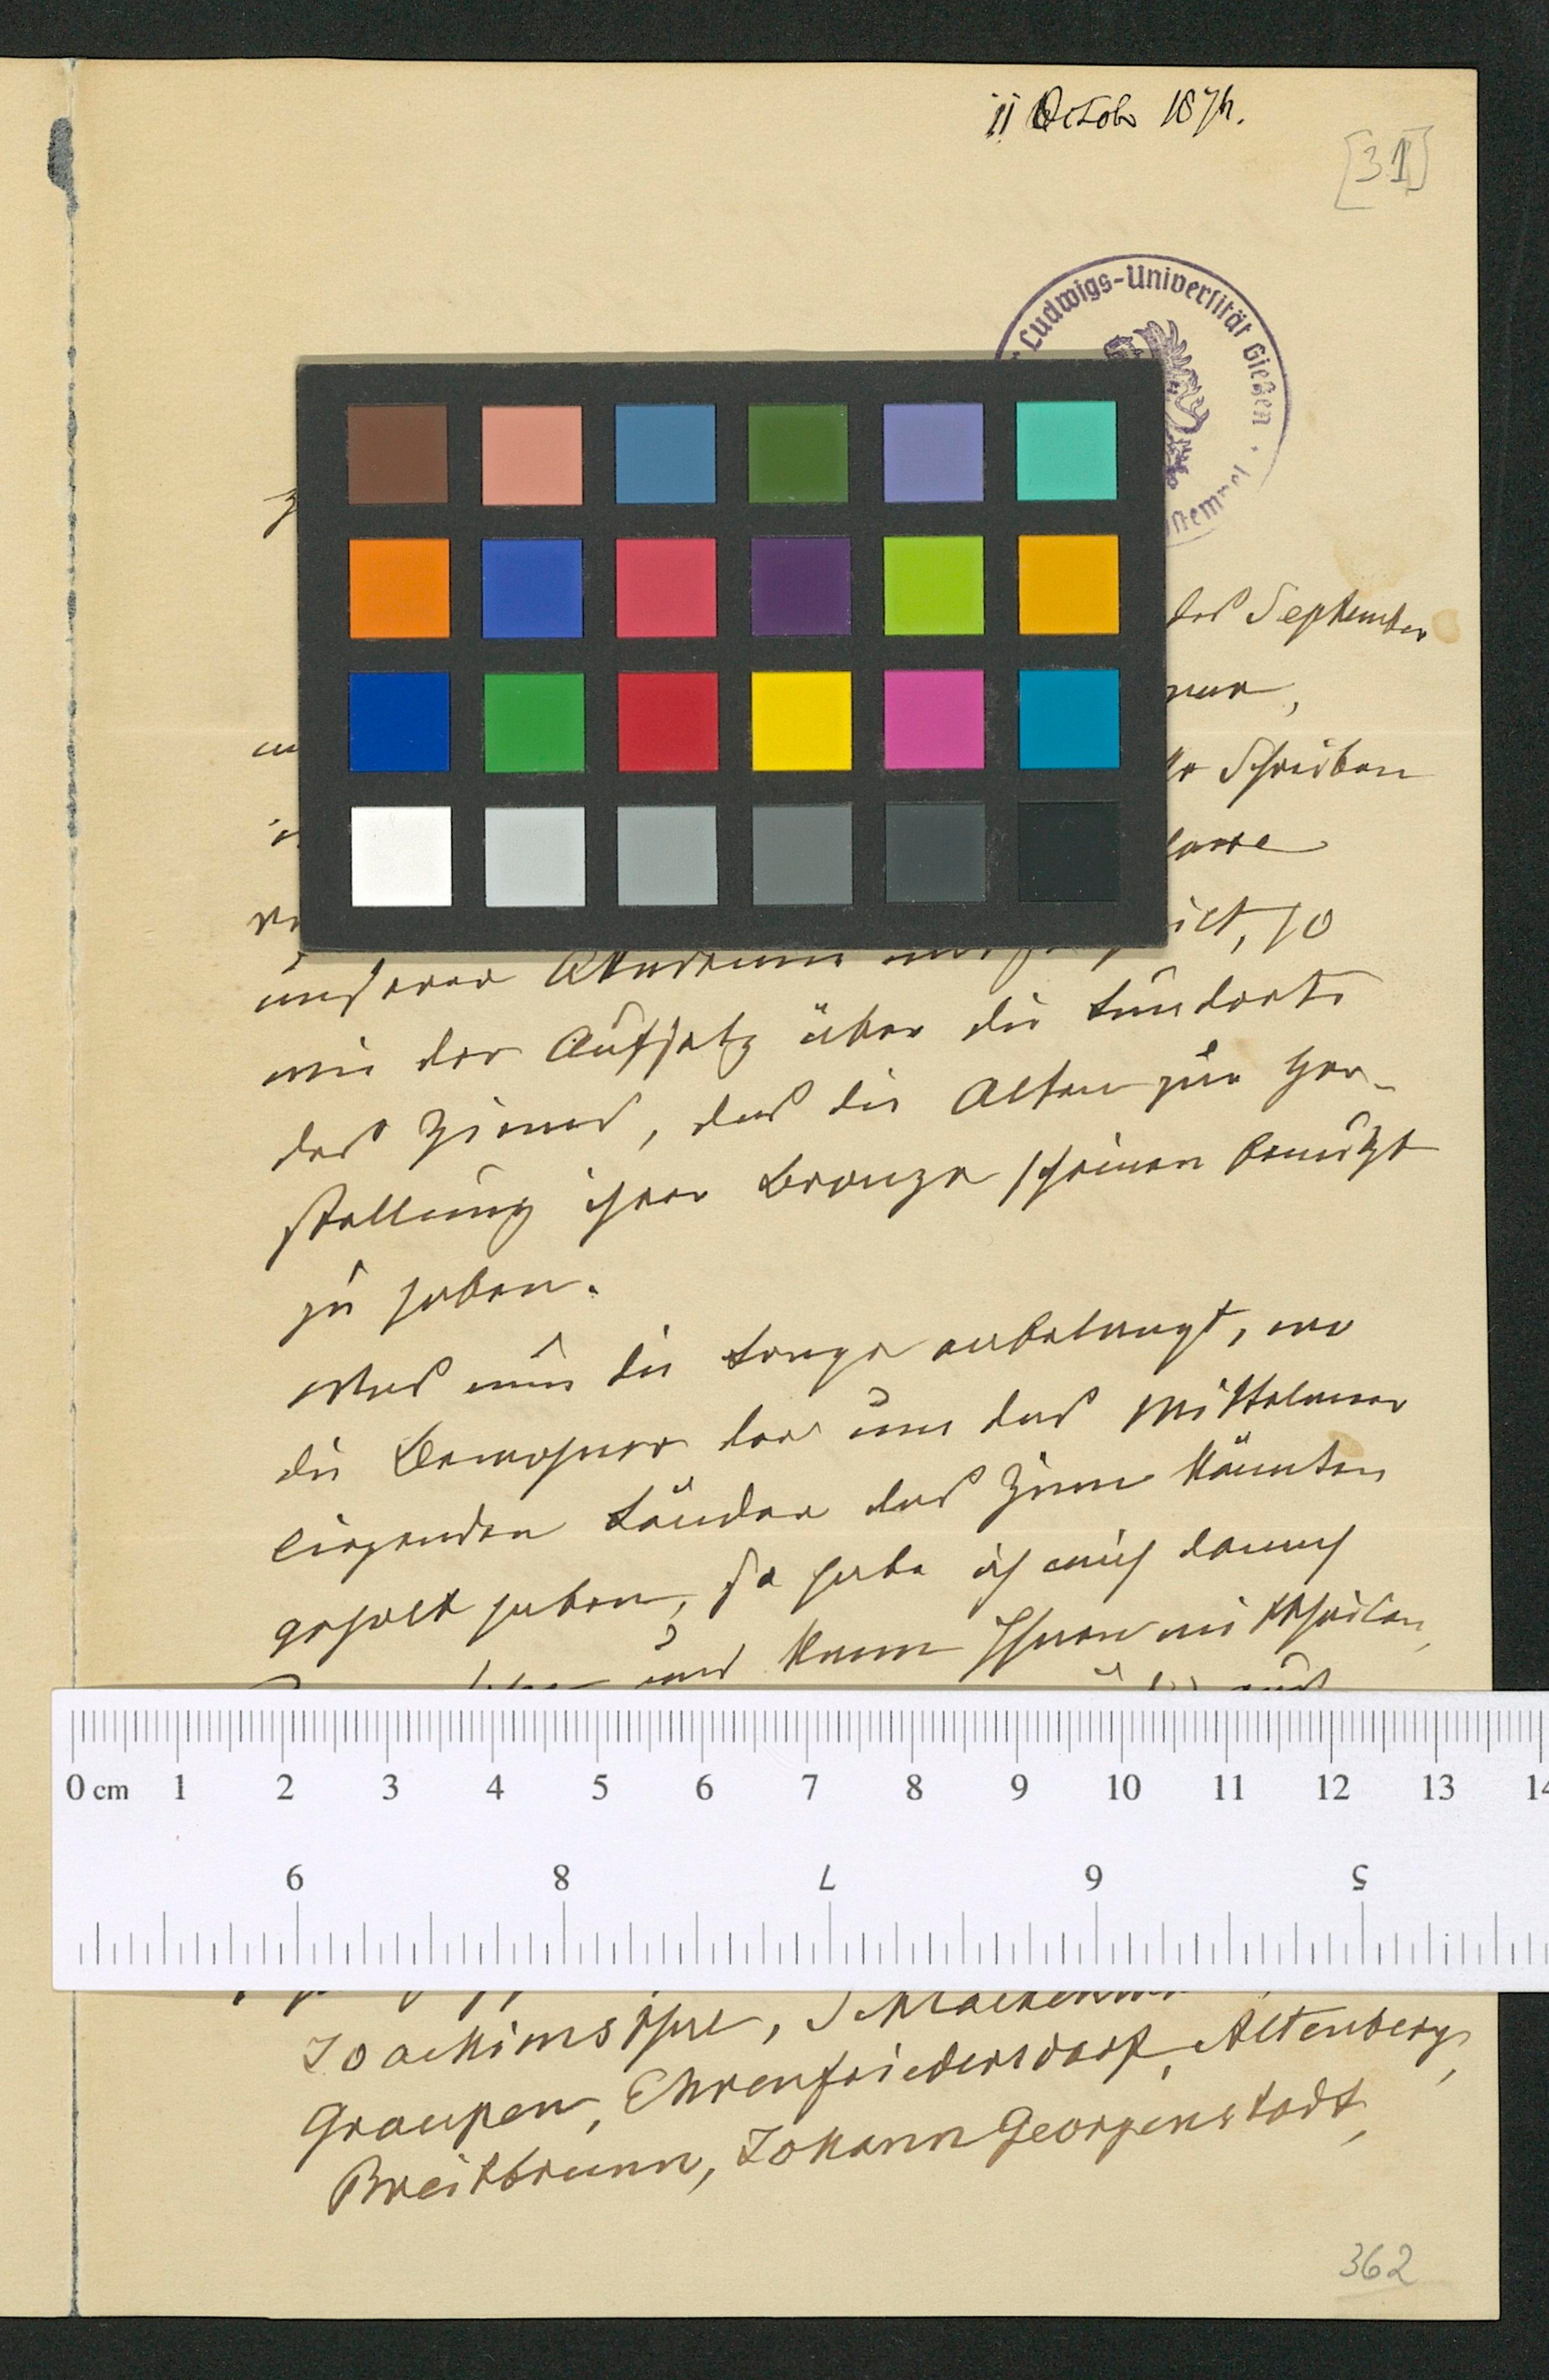 11 Octobr 1874.
[31]
Ludwigs-Universität Gießen
des September
nur,
Schreiben
unserer Akademie
ict, so
wie der Aufsatz über die Fundorte
des Zinnes, das die Alten zur Her-
stellung ihrer Bronze scheinen benützt
zu haben.
Was nun die Frage anbelangt, wo
die Bewohner der um das Mittelmeer
liegenden Länder das Zinn könnten
geholt haben, so habe ich mich darnach
und kann Ihnen mittheilen,
0 cm 1 2 3 4 5 6 7 8 9 10 11 12 13 14
9 8 7 6 5
Joachimsthal,
Graupen, Ehrenfriedersdorf, Altenberg,
Breitbrunn, Johann Georgenstadt,
362